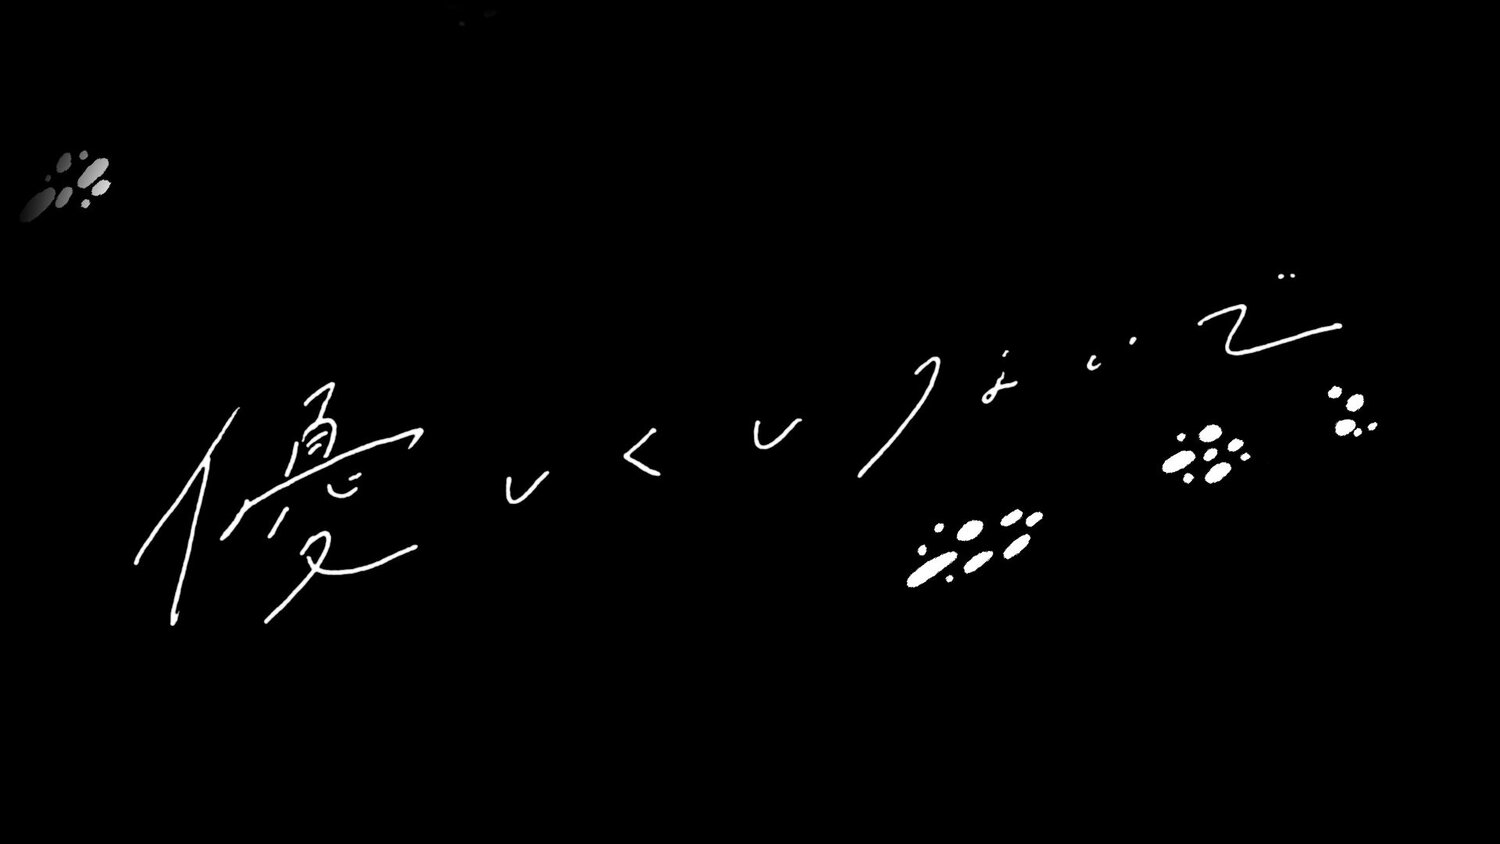 優しくしないで